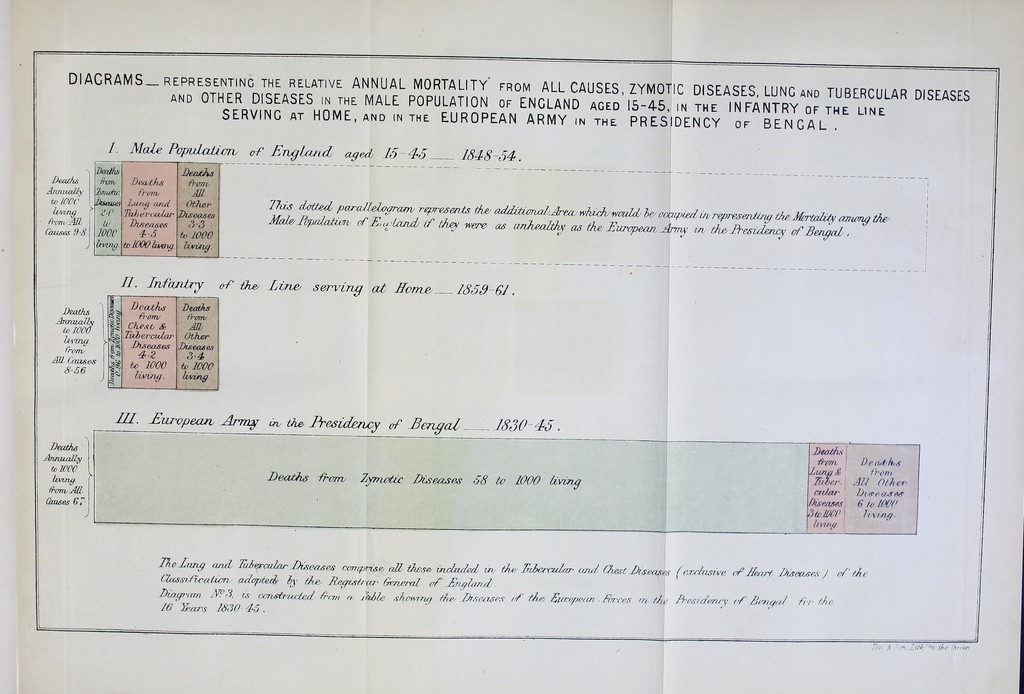 DIAGRAMS — REPRESENTING THE RELATIVE ANNUAL MORTALITY FROM ALL CAUSES, ZYMOTIC DISEASES, LUNG AND TUBERCULAR DISEASES
AND OTHER DISEASES IN THE MALE POPULATION OF ENGLAND AGED 15-45, IN THE INFANTRY OF THE LINE
SERVING AT HOME, AND IN THE EUROPEAN ARMY IN THE PRESIDENCY OF BENGAL.
I. Male Population of England aged 15-45 — 1848-54.
Deaths
Annually
to 1000
living
from All
Causes 9·8
Deaths
from
Zymotic
Diseases
2·0
to
1000
living.
Deaths
from
Lung and
Tubercular
Diseases
4·5
to 1000 living.
Deaths
from
All
Other
Diseases
3·3
to 1000
living.
This dotted parallelogram represents the additional Area which would be occupied in representing the Mortality among the
Male Population of England if they were as unhealthy as the European Army in the Presidency of Bengal.
II. Infantry of the Line serving at Home — 1859-61.
Deaths
Annually
to 1000
living
from
All Causes
8·56
Deaths from Zymotic Diseases
0·96 to 1000 living.
Deaths
from
Chest &
Tubercular
Diseases
4·2
to 1000
living.
Deaths
from
All
Other
Diseases
3·4
to 1000
living.
III. European Army in the Presidency of Bengal — 1830-45.
Deaths
Annually
to 1000
living
from All
Causes 67
Deaths from Zymotic Diseases 58 to 1000 living
Deaths
from
Lung &
Tuber-
cular
Diseases
3 to 1000
living.
Deaths
from
All Other
Diseases
6 to 1000
living.
The Lung and Tubercular Diseases comprise all those included in the Tubercular and Chest Diseases (exclusive of Heart Diseases) of the
Classification adopted by the Registrar General of England.
Diagram No 3. is constructed from a Table showing the Diseases of the European Forces in the Presidency of Bengal for the
16 Years 1830-45.
Lith. to the Queen